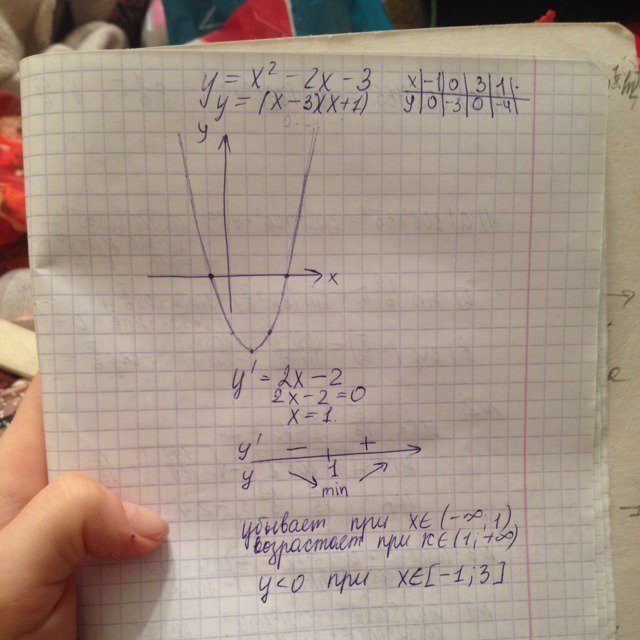 y = x² - 2x - 3
y = (x-3)(x+1)
x | -1 | 0 | 3 | 1 |
y | 0 | -3 | 0 | -4 |
y
x
y' = 2x - 2
2x - 2 = 0
x = 1
y' - +
y 1
min
убывает при x∈(-∞;1)
возрастает при x∈(1;+∞)
y<0 при x∈[-1;3]